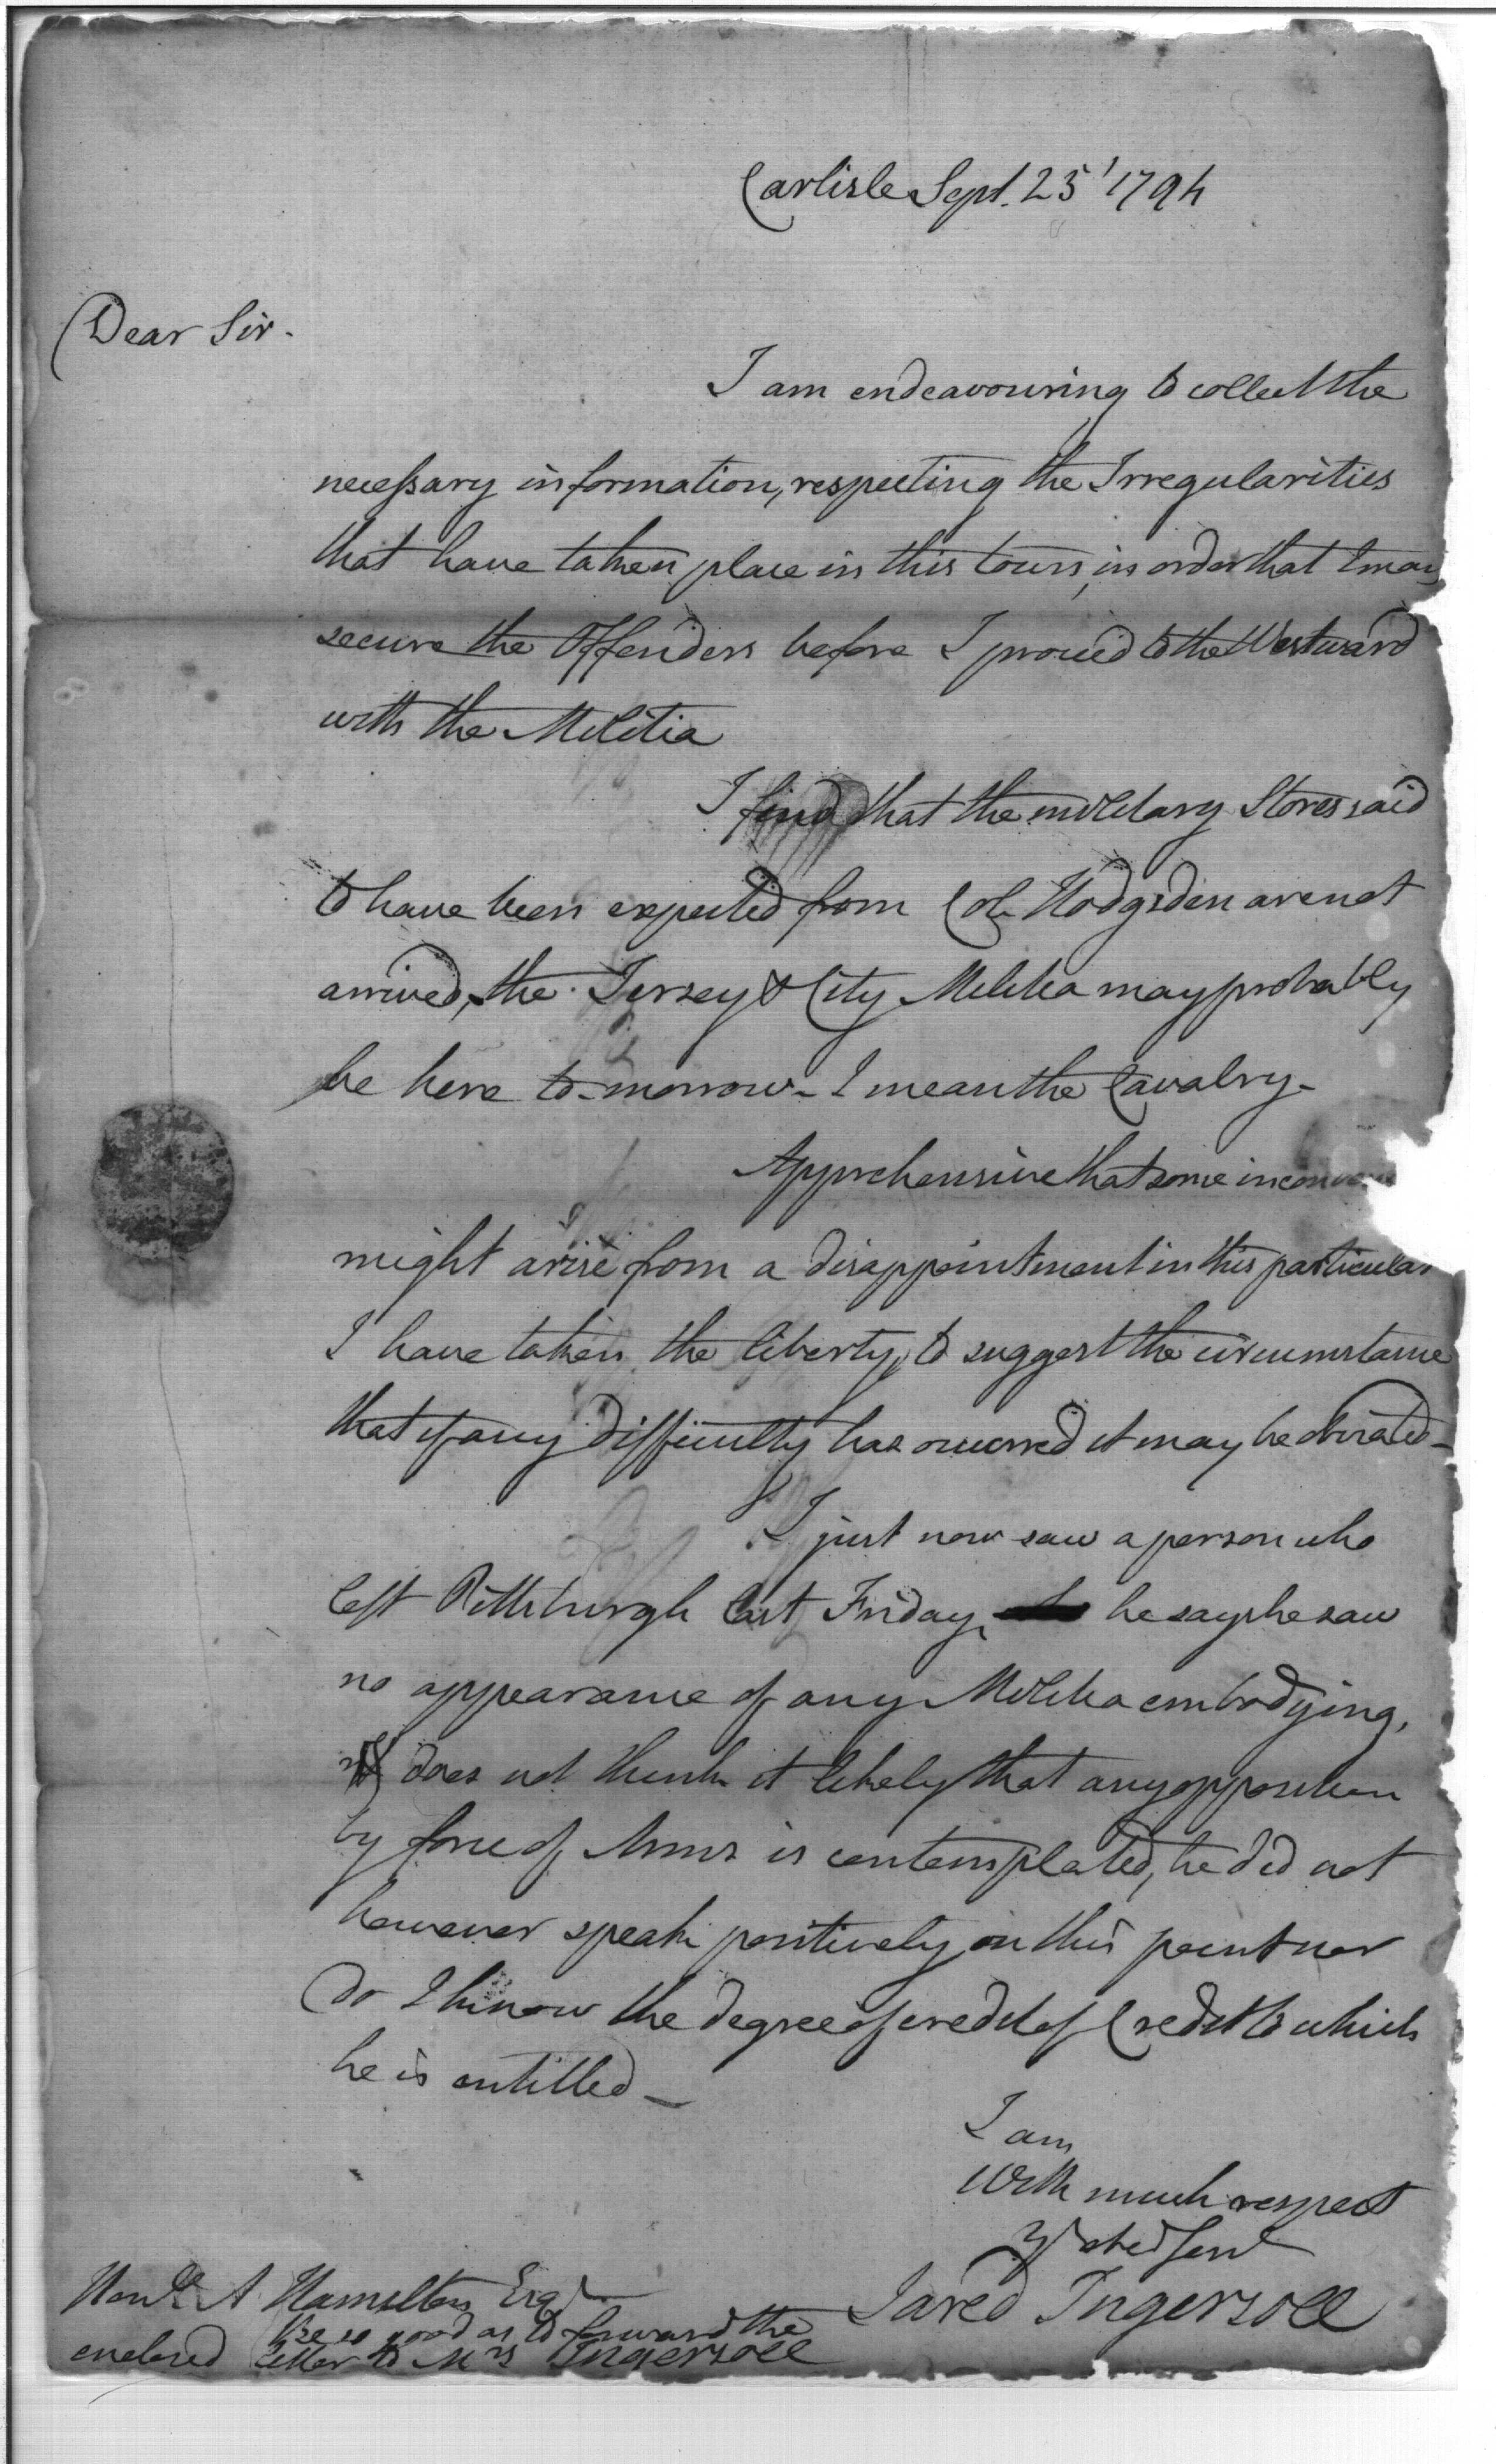 Carlisle Sept. 25' 1794
Dear Sir.
I am endeavouring to collect the
necessary information, respecting the Irregularities
that have taken place in this town, in order that I may
secure the Offenders before I proceed to the Westward
with the Militia
I find that the military Stores said
to have been expected from Col. Hodgsden are not
arrived, the Jersey & City Militia may probably
be here to-morrow - I mean the Cavalry -
Apprehensive that some inconven
might arise from a disappointment in this particular
I have taken the liberty, to suggest the circumstance
that if any difficulty has occurred it may be obviated -
I just now saw a person who
left Pittsburgh last Friday, he says he saw
no appearance of any Militia embodying,
does not think it likely that any opposition
by force of Arms is contemplated, he did not
however speak positively on this point nor
do I know the degree of credit of Credit to which
he is entitled -
I am
With much respect
Yr obed Servt
Jared Ingersoll
Honble A Hamilton Esqr
Be so good as to forward the
enclosed letter to Mrs Ingersoll